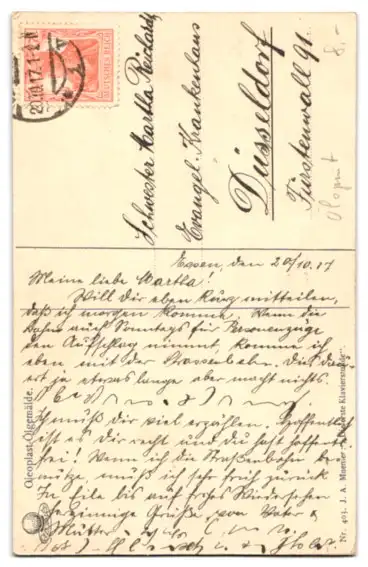 20.10.17. 1-2 N
DEUTSCHES REICH
8.-
Schwester Martha Reichardt
Evangel. Krankenhaus
Düsseldorf
Fürstenwall 91
Essen, den 20/10.17
Meine liebe Martha!
Will dir eben kurz mitteilen,
daß ich morgen komme. Wenn die
Bahn auch Sonntags für Personenzüge
den Aufschlag nimmt, komme ich
eben mit der Strassenbahn. Dies dau-
ert ja etwas lange aber macht nichts.
Ich muß dir viel erzählen. Hoffentlich
ist es dir recht und du hast hoffentl.
frei! Wenn ich die Straßenbahn be-
nütze, muß ich sehr früh zurück
In Eile bis auf frohes Wiedersehen
herzinnige Grüße, von Vater &
Mutter
Oleoplast-Ölgemälde.
Nr. 403. J. A. Muenier "Die erste Klavierstunde".